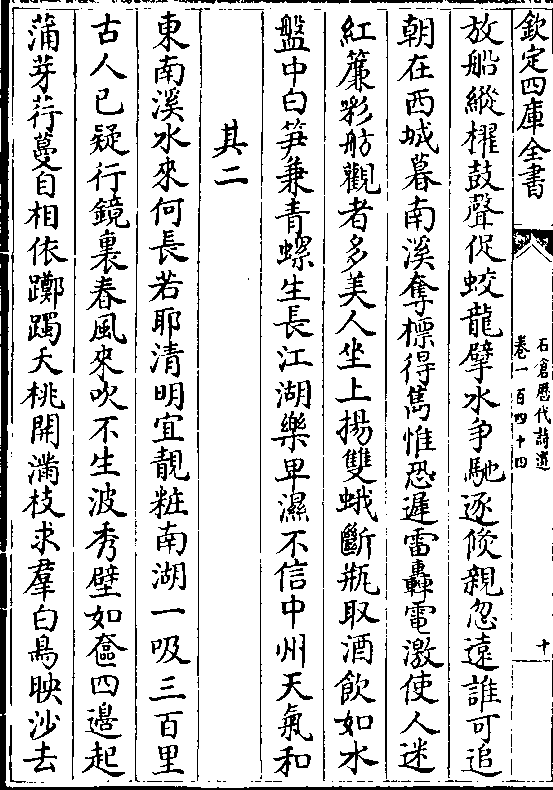 欽定四庫全書
石倉歷代詩選
卷一百四十四
十
放船縱櫂鼓聲促蛟龍擘水爭馳逐倐親忽遠誰可追
朝在西城暮南溪奪標得雋惟恐遲雷轟電激使人迷
紅簾彩舫觀者多美人坐上揚雙蛾斷瓶取酒飲如水
盤中白笋兼青螺生長江湖樂卑濕不信中州天氣和
其二
東南溪水來何長若耶清明宜靚粧南湖一吸三百里
古人已疑行鏡裏春風來吹不生波秀壁如奩四邊起
蒲芽荇蔓自相依躑躅夭桃開滿枝求羣白鳥映沙去